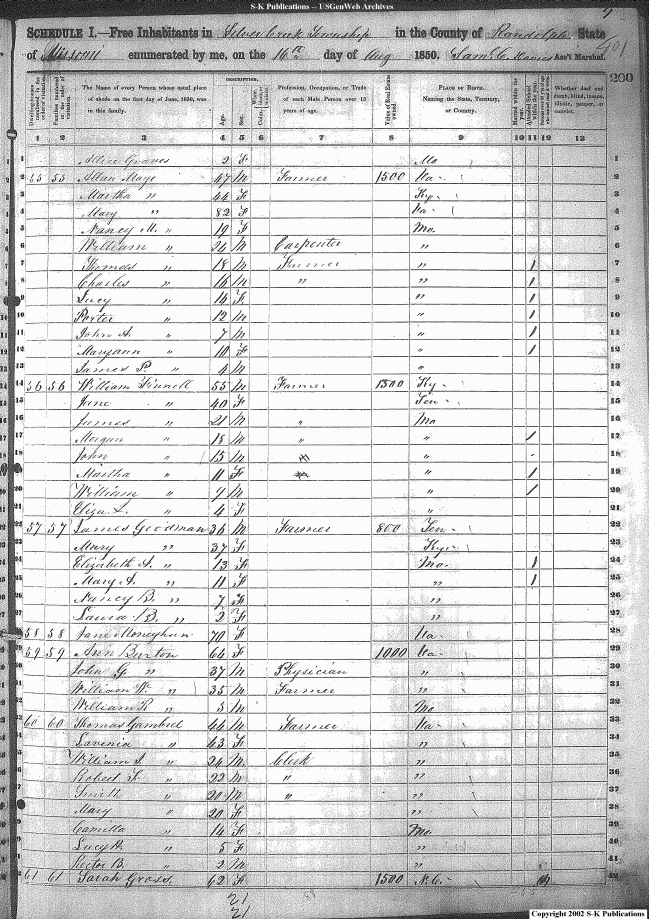 S-K Publications -- USGenWeb Archives
SCHEDULE I.—Free Inhabitants in Silver Creek Township in the County of Randolph State
of Missouri enumerated by me, on the 16th day of Aug 1850. Ass't Marshal.
401
200
DESCRIPTION.
Dwelling-houses numbered in the order of visitation. Families numbered in the order of visitation. The Name of every Person whose usual place of abode on the first day of June, 1850, was in this family. Age. Sex. Profession, Occupation, or Trade of each Male Person over 15 years of age. Value of Real Estate owned. PLACE OF BIRTH. Naming the State, Territory, or Country. Married within the year. Attended School within the year. Whether deaf and dumb, blind, insane, idiotic, pauper, or convict.
1 2 3 4 5 6 7 8 9 10 11 12 13
1 Allice Graves 2 F Mo 1
2 55 55 Allan Mayo 47 M Farmer 1500 Va 2
3 Martha " 44 F Ky 3
4 Mary " 82 F Va 4
5 Nancy M. " 19 F Mo. 5
6 William " 24 M Carpenter " 6
7 Thomas " 18 M Farmer " 1 7
8 Charles " 16 M " " 1 8
9 Lucy " 14 F " 1 9
10 Porter " 12 M " 1 10
11 John A. " 7 M " 1 11
12 Maryann " 10 F " 1 12
13 James P. " 4 M " 13
14 56 56 William Finnell 55 M Farmer 1500 Ky 14
15 Jane " 40 F Ten 15
16 James " 21 M " Mo 16
17 Morgan " 18 M " " 1 17
18 John " 15 M " 18
19 Martha " 11 F " 1 19
20 William " 9 M " 1 20
21 Eliza L. " 4 F " 21
22 57 57 James Goodman 36 M Farmer 800 Ten 22
23 Mary " 37 F Ky 23
24 Elizabeth A. " 13 F Mo. 1 24
25 Mary A. " 11 F " 1 25
26 Nancy B. " 7 F " 26
27 Laura B. " 2 F " 27
28 58 58 Jane 70 F Va 28
29 59 59 Ann Burton 64 F 1000 Va 29
30 John G. " 37 M Physician " 30
31 William W. " 35 M Farmer " 31
32 William R " 5 M Mo 32
33 60 60 Thomas Gambrel 44 M Farmer Va 33
34 Lavenia " 43 F " 34
35 William S. " 24 M Clerk " 35
36 Robert F. " 22 M " " 36
37 Smith " 20 M " " 37
38 Mary " 20 F " 38
39 Camilla " 14 F Mo. 39
40 Lucy H. " 5 F " 40
41 Rector B. " 2 M " 41
42 61 61 Sarah Gross. 62 F 1500 N.C. 42
21
21
Copyright 2002 S-K Publications